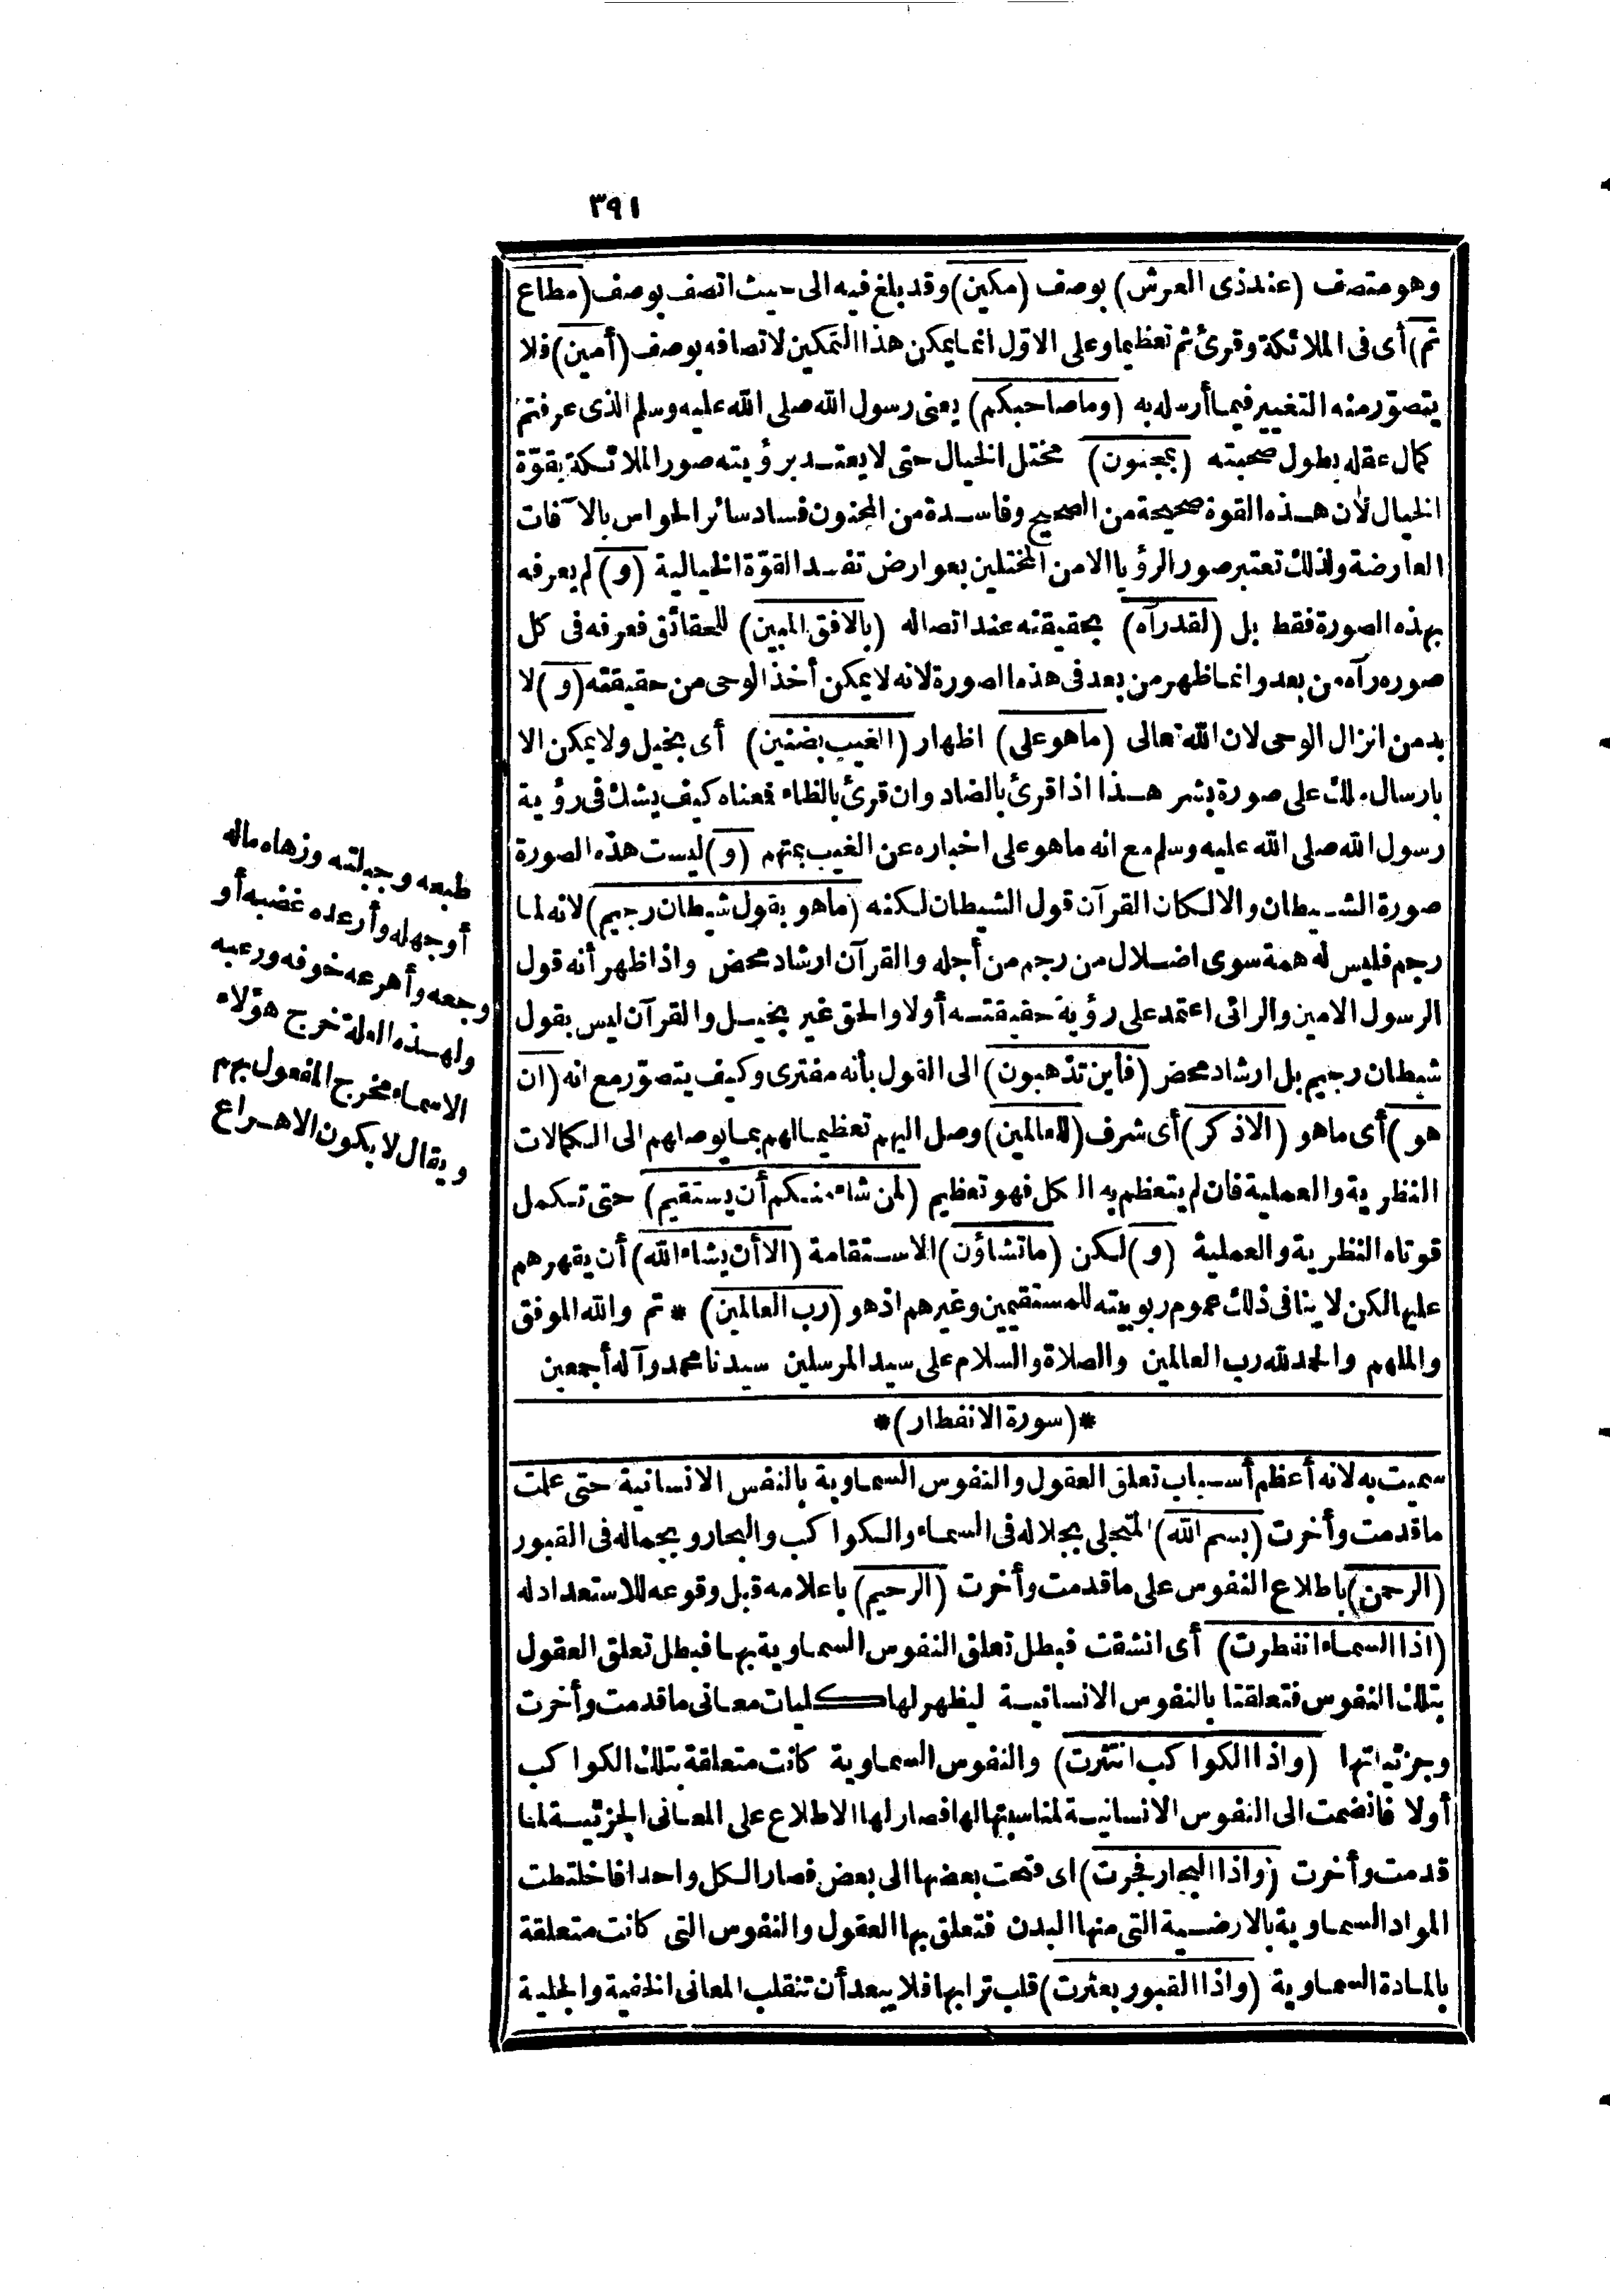 ٣٩١
وهو متصف (عند ذى العرش) بوصف (مكين) وقد بلغ فيه الى حيث اتصف بوصف (مطاع
ثم) أى فى الملائكة وقرئ ثم تعظيما وعلى الاوّل انما يمكن هذا التمكين لاتصافه بوصف (أمين) فلا
يتصوّر منه التغيير فيما أرسله به (وما صاحبكم) يعنى رسول الله صلى الله عليه وسلم الذى عرفتم
كمال عقله بطول صحبته (بمجنون) مختل الخيال حتى لا يعتد برؤيته صور الملائكة بقوّة
الخيال لأن هذه القوة صحيحة من الصحيح وفاسدة من المجنون فساد سائر الحواس بالآفات
العارضة ولذلك تعتبر صور الرؤيا الا من المختلين بعوارض تفسد القوّة الخيالية (و) لم يعرفه
بهذه الصورة فقط بل (لقد رآه) بحقيقته عند اتصاله (بالافق المبين) للحقائق فعرفه فى كل
صوره رآه من بعد وانما ظهر من بعد فى هذه الصورة لانه لا يمكن أخذ الوحى من حقيقته (و) لا
بد من انزال الوحى لان الله تعالى (ما هو على) اظهار (الغيب بضنين) أى بخيل ولا يمكن الا
بارسال ملك على صورة بشر هذا اذا قرئ بالضاد وان قرئ بالظاء فمعناه كيف يشك فى رؤية
رسول الله صلى الله عليه وسلم مع انه ما هو على اخباره عن الغيب بمتهم (و) ليست هذه الصورة
صورة الشيطان والا لكان القرآن قول الشيطان لكنه (ما هو بقول شيطان رجيم) لانه لما
رجم فليس له همة سوى اضلال من رجم من أجله والقرآن ارشاد محض واذا ظهر أنه قول
الرسول الامين والرائى اعتمد على رؤية حقيقته أولا والحق غير بخيل والقرآن ليس بقول
شيطان رجيم بل ارشاد محض (فأين تذهبون) الى القول بأنه مفترى وكيف يتصوّر مع انه (ان
هو) أى ما هو (الا ذكر) أى شرف (للعالمين) وصل اليهم تعظيما لهم بما يوصلهم الى الكمالات
النظرية والعملية فان لم يتعظم به الكل فهو تعظيم (لمن شاء منكم أن يستقيم) حتى تكمل
قوتاه النظرية والعملية (و) لكن (ما تشاؤن) الاستقامة (الا أن يشاء الله) أن يقهرهم
عليها لكن لا ينافى ذلك عموم ربوبيته للمستقيمين وغيرهم اذ هو (رب العالمين) * تم والله الموفق
والملهم والحمد لله رب العالمين والصلاة والسلام على سيد المرسلين سيدنا محمد وآله أجمعين
*(سورة الانفطار)*
سميت به لانه أعظم أسباب تعلق العقول والنفوس السماوية بالنفس الانسانية حتى علمت
ما قدمت وأخرت (بسم الله) المتجلى بجلاله فى السماء والكواكب والبحار وبجماله فى القبور
(الرحمن) باطلاع النفوس على ما قدمت وأخرت (الرحيم) باعلامه قبل وقوعه للاستعداد له
(اذا السماء انفطرت) أى انشقت فبطل تعلق النفوس السماوية بها فبطل تعلق العقول
بتلك النفوس فتعلقتا بالنفوس الانسانية ليظهر لها كليات معانى ما قدمت وأخرت
وجزئياتها (واذا الكواكب انتثرت) والنفوس السماوية كانت متعلقة بتلك الكواكب
أولا فانضمت الى النفوس الانسانية لمناسبتها لها فصار لها الاطلاع على المعانى الجزئية لما
قدمت وأخرت (واذا البحار فجرت) اى فتحت بعضها الى بعض فصار الكل واحدا فاختلطت
المواد السماوية بالارضية التى منها البدن فتعلق بها العقول والنفوس التى كانت متعلقة
بالمادة السماوية (واذا القبور بعثرت) قلب ترابها فلا يبعد أن تنقلب المعانى الخفية والجلية
طبعه وجبلته وزهاه ماله
أو جهله وأرعده غضبه أو
وجعه وأهرعه خوفه ورعبه
ولهذه العلة خرج هؤلاء
الاسماء مخرج المفعول بهم
ويقال لا يكون الاهراع